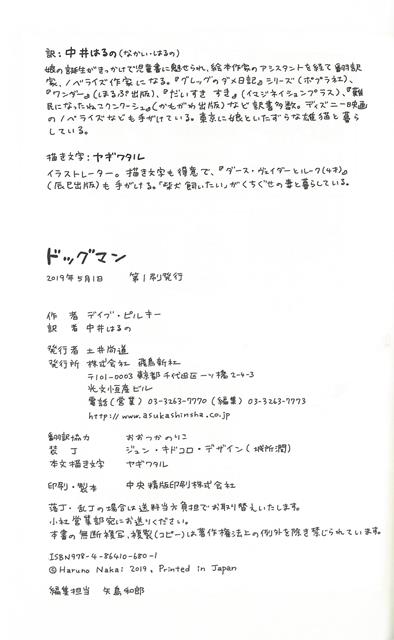 訳：中井はるの（なかい・はるの）
娘の誕生がきっかけで児童書に魅せられ、絵本作家のアシスタントを経て翻訳
家、ノベライズ作家になる。『グレッグのダメ日記』シリーズ（ポプラ社）、
『ワンダー』（ほるぷ出版）、『だいすき すき』（イマジネイション・プラス）、『難
民になったねこクンクーシュ』（かもがわ出版）など訳書多数。ディズニー映画
のノベライズなども手がけている。東京に娘といたずらな雄猫と暮ら
している。
描き文字：ヤギワタル
イラストレーター。描き文字も得意で、『ダース・ヴェイダーとルーク（4才）』
（辰巳出版）も手がける。「柴犬飼いたい」がくちぐせの妻と暮らしている。
ドッグマン
2019年5月1日 第1刷発行
作 者 デイブ・ピルキー
訳 者 中井はるの
発行者 土井尚道
発行所 株式会社 飛鳥新社
〒101-0003 東京都千代田区一ツ橋2-4-3
光文恒産ビル
電話（営業）03-3263-7770（編集）03-3263-7773
http://www.asukashinsha.co.jp
翻訳協力 おおつかのりこ
装 丁 ジュン・キドコロ・デザイン（城所潤）
本文描き文字 ヤギワタル
印刷・製本 中央精版印刷株式会社
落丁・乱丁の場合は送料当方負担でお取り替えいたします。
小社営業部宛にお送りください。
本書の無断複写、複製（コピー）は著作権法上の例外を除き禁じられています。
ISBN978-4-86410-680-1
© Haruno Nakai 2019, Printed in Japan
編集担当 矢島和郎